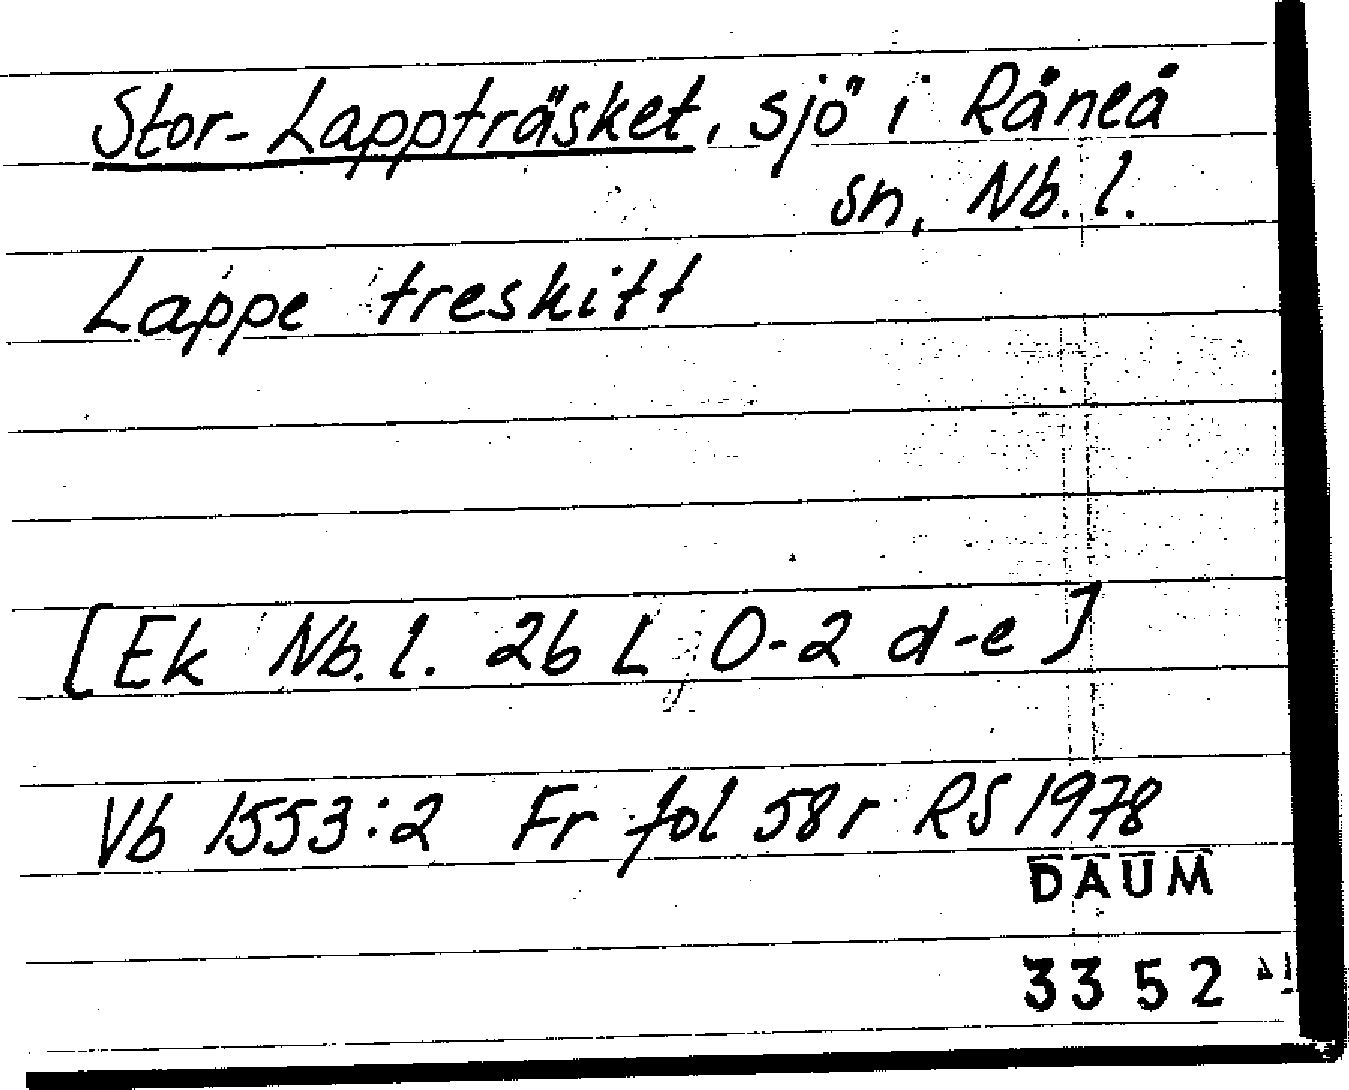 Stor-Lappträsket, sjö i Råneå
sn, Nb. l.
Lappe treskitt
[Ek Nb. l. 26 L, 0-2 d-e]
Vb 1553:2 Fr fol 58r RS 1978
DAUM
3352